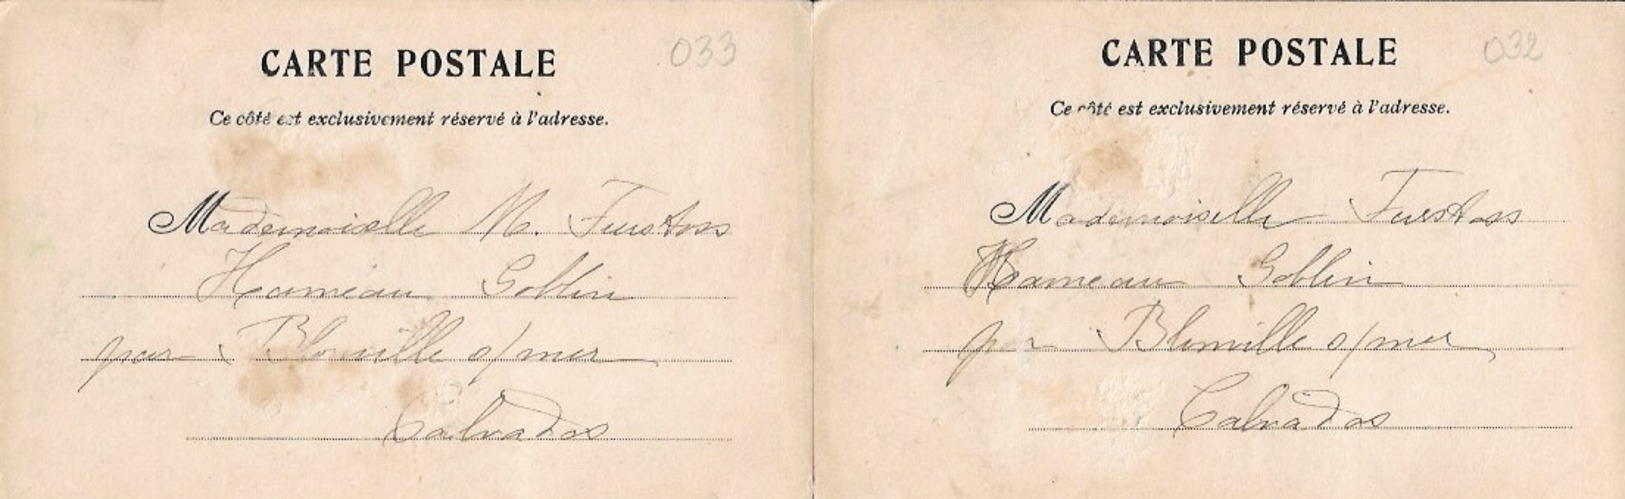 CARTE POSTALE
033
Ce côté est exclusivement réservé à l'adresse.
Mademoiselle M. Furstoss
Hameau Goblin
par Blonville s/mer
Calvados
CARTE POSTALE
032
Ce côté est exclusivement réservé à l'adresse.
Mademoiselle Furstoss
Hameau Goblin
par Blonville s/mer
Calvados